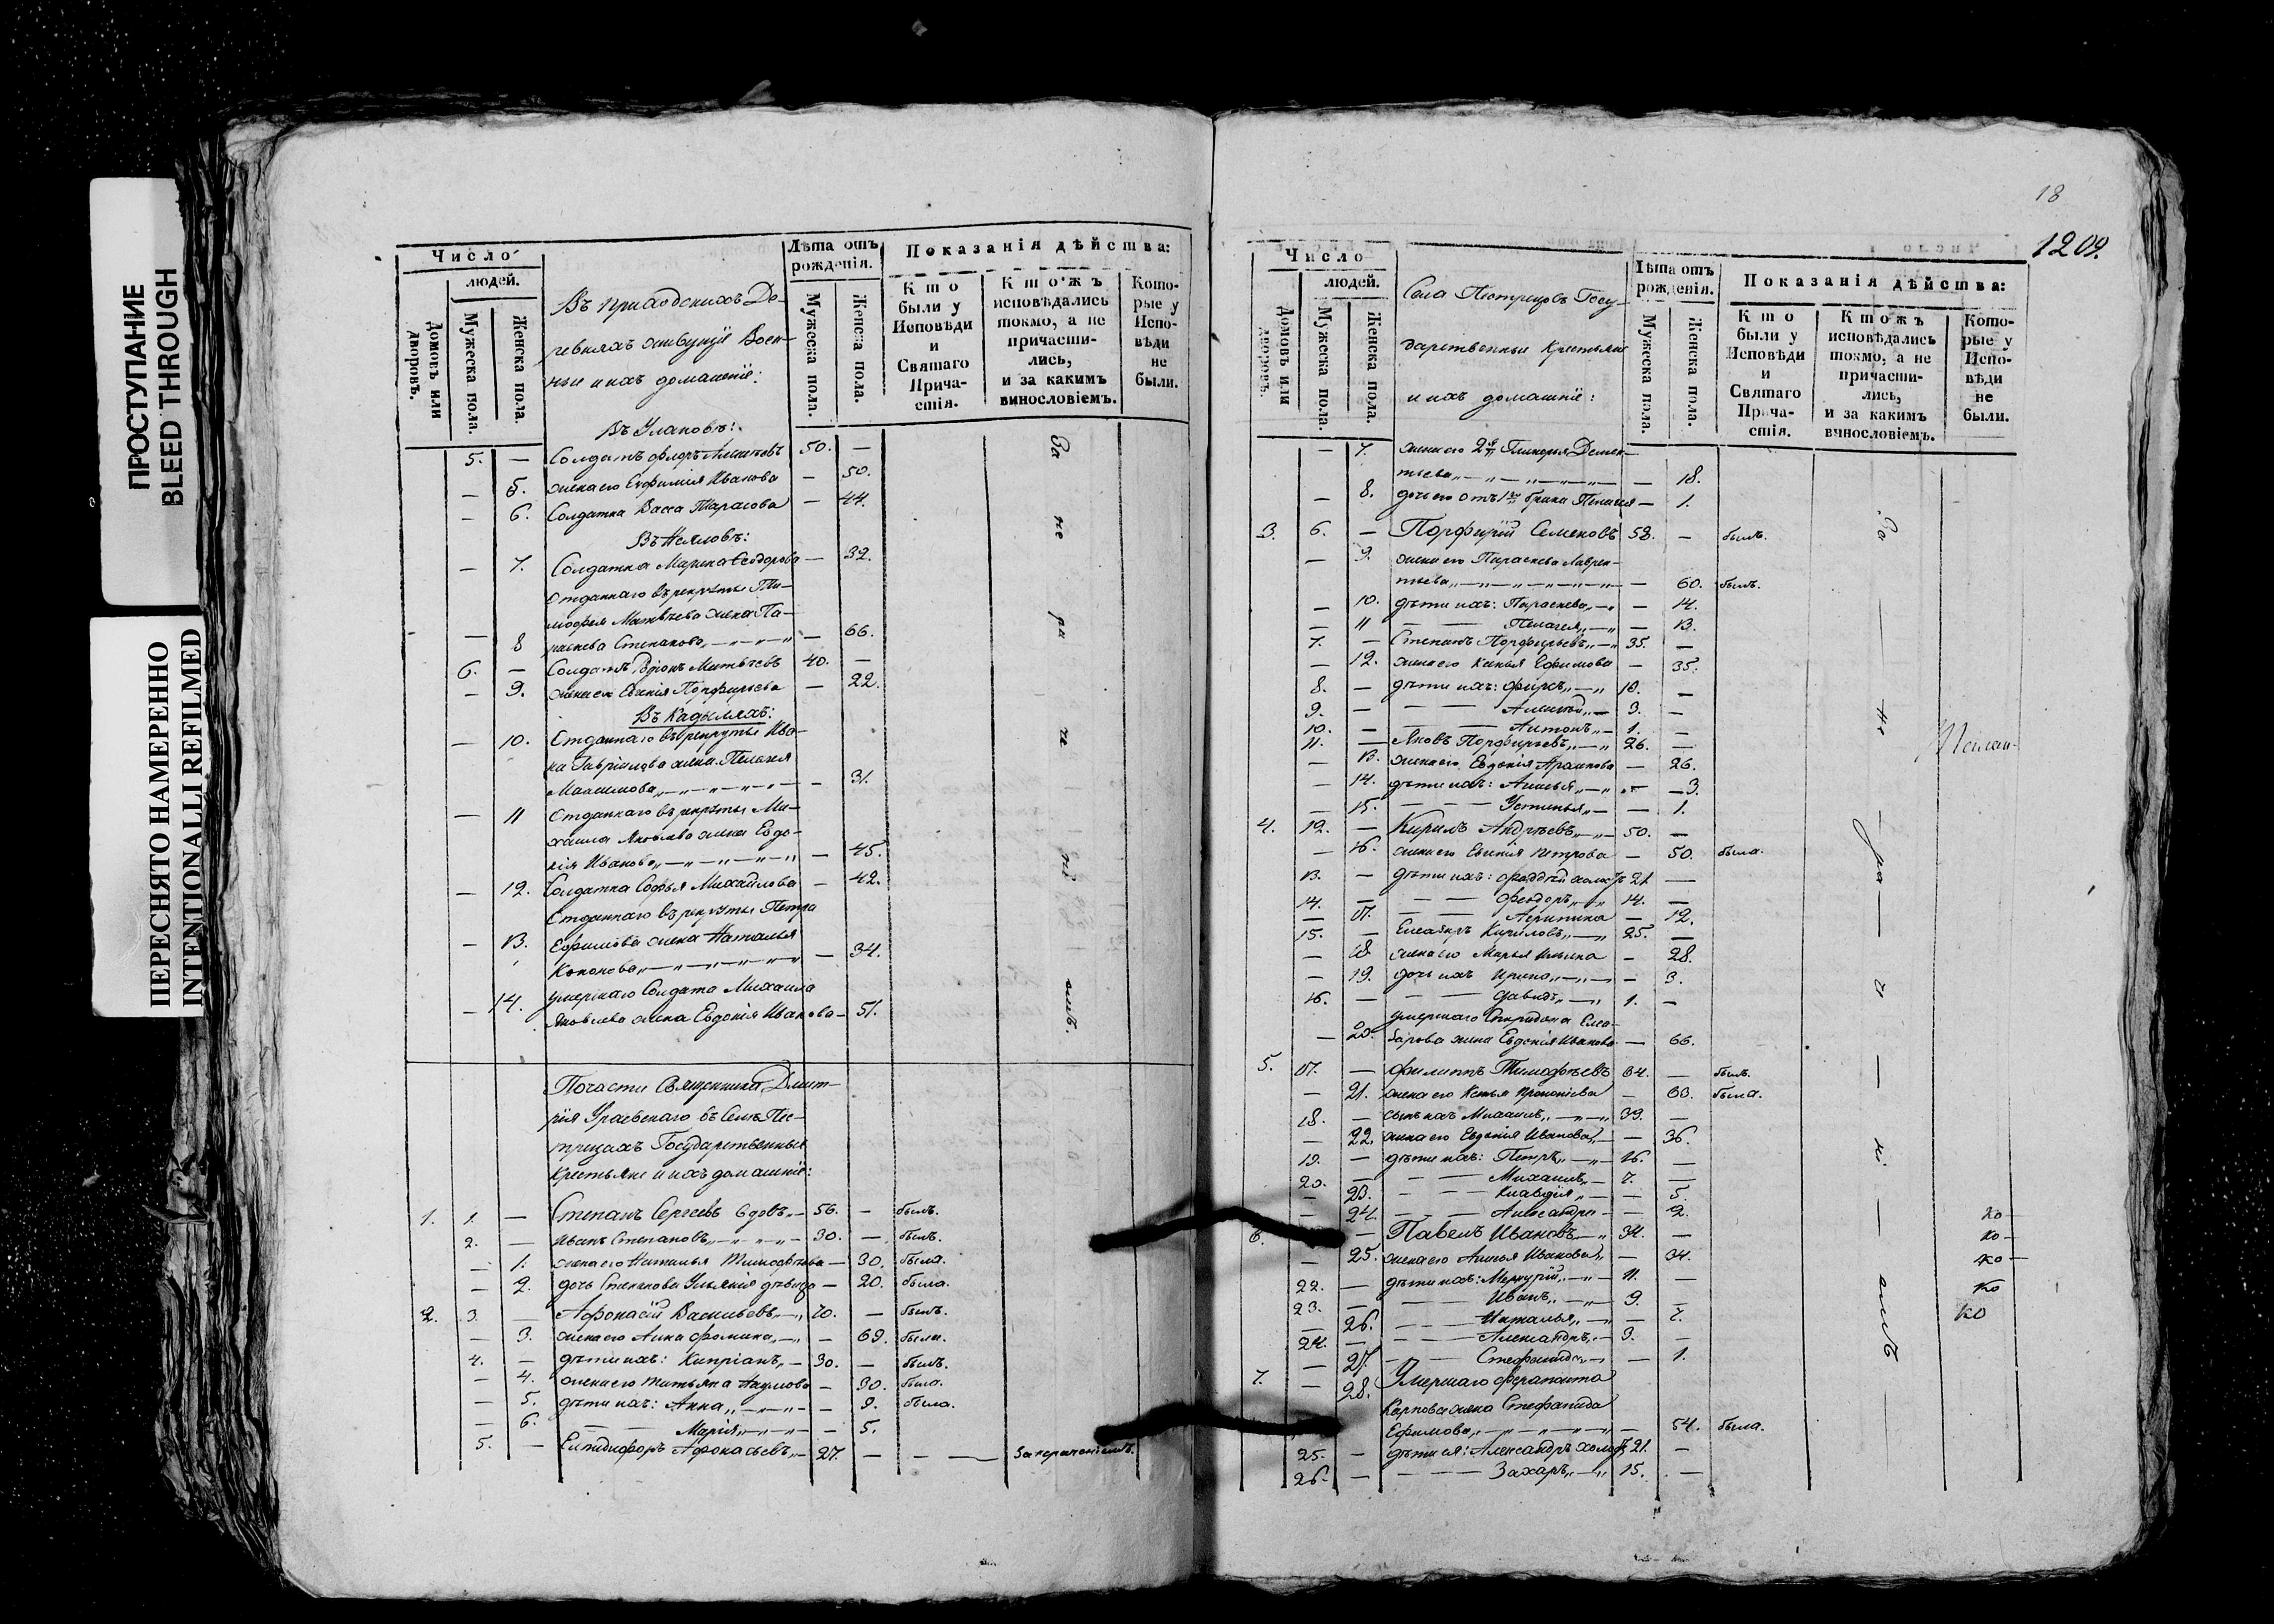 ПРОСТУПАНИЕ
BLEED THROUGH
ПЕРЕСНЯТО НАМЕРЕННО
INTENTIONALLI REFILMED
Число
людей.
Домовъ или дворовъ.
Мужеска пола.
Женска пола.
Въ приходскихъ Де-
ревняхъ живущіе Воен-
ные и ихъ домашніе:
Лѣта отъ рожденія.
Мужеска пола.
Женска пола.
Показанія дѣйства:
Кто были у Исповѣди и Святаго Прича- стія.
Кто жъ исповѣдались токмо, а не причасти- лись, и за какимъ винословіемъ.
Кото- рые у Испо- вѣди не были.
Въ Улановѣ:
5. — Солдатъ Флоръ 50. —
— 5. жена его Евфимія Иванова — 50.
— 6. Солдатка Васса Тарасова — 44.
— 7. Солдатка Марина Ѳеодорова — 32.
Отданнаго въ рекруты Ти-
мофея Матвѣева жена Па-
— 8 раскева Степанова — 66.
6. — Солдатъ Родіонъ Матвѣевъ 40. —
— 9. жена его Евгенія Порфирьева — 22.
Въ Кадыляхъ:
— 10. Отданнаго въ рекруты Ива-
на Гавріилова жена Пелагея
Максимова — 31.
— 11 Отданнаго въ рекруты Ми-
хаила Яковлева жена Евдо-
кія Иванова — 45.
— 12. Солдатка Софья Михайлова — 42.
Отданнаго въ рекруты Петра
— 13. Ефимова жена Наталья
Кононова — 34.
умершаго Солдата Михаила
— 14. Яковлева жена Евдокія Иванова — 51.
За не ра че ні емъ.
По части Священника Дмит-
рія Ураевскаго въ Селѣ Пес-
трецахъ Государственные
Крестьяне и ихъ домашніе:
1. 1. — Степанъ Сергеевъ вдовъ 56. — былъ.
2. — Иванъ Степановъ 30. — былъ.
— 1. жена его Наталья Тимофѣева — 30. была.
— 2. дочь Степанова Ульянія дѣвица — 20. была.
2. 3. — Афонасій Васильевъ 70. — былъ.
— 3. жена его Анна Фомина — 69. была.
4. — дѣти ихъ: Кипріанъ 30. — былъ.
— 4. жена его Татьяна Наумова — 30. была.
— 5. дѣти ихъ: Анна — 9. была.
— 6. Марія — 5.
5. — Елпидифоръ Афонасьевъ 27. — — За нераченіемъ.
18
1209.
Число
людей.
Домовъ или дворовъ.
Мужеска пола.
Женска пола.
Села Пестрецовъ Госу-
дарственные Крестьяне
и ихъ домашніе:
Лѣта отъ рожденія.
Мужеска пола.
Женска пола.
Показанія дѣйства:
Кто были у Исповѣди и Святаго Прича- стія.
Кто жъ исповѣдались токмо, а не причасти- лись, и за какимъ винословіемъ.
Кото- рые у Испо- вѣди не были.
— 7. жена его 2я Гликерья Демен-
тьева — 18.
— 8. дочь его отъ 1го брака Пелагея — 1.
3. 6. — Порфирій Семеновъ 58. — былъ.
— 9. жена его Параскева Лаврен-
тьева — 60. была.
— 10. дѣти ихъ: Параскева — 14.
— 11 Пелагея — 13.
7. — Степанъ Порфирьевъ 35. —
— 12. жена его Ефимова — 35.
8. — дѣти ихъ: Фирсъ 10. —
9. — Алексѣй 3. —
10. — Антонъ 1. —
11. — Яковъ Порфирьевъ 26. —
— 13. жена его Евдокія — 26.
— 14. дѣти ихъ: — 3.
— 15. Устинья — 1.
4. 12. — Кирилъ Андреевъ 50. —
— 16. жена его Евгенія Петрова — 50. была.
13. — дѣти ихъ: Фаддей холостъ 21 —
14. — Ѳеодоръ 14. —
— 17. Агрипина — 12.
15. — Елеазаръ Кириловъ 25. —
— 18 жена его Марья Ильина — 28.
— 19. дочь ихъ Ирина — 3.
16. — Давидъ 1. —
умершаго Спиридона Елеа-
— 20. зарова жена Евдокія Иванова — 66.
5. 17. — Филиппъ Тимофѣевъ 64. — былъ.
— 21. жена его Прокопіева — 63. была.
18. — сынъ ихъ Михаилъ 39. —
— 22. жена его Евдокія Иванова — 36.
19. — дѣти ихъ: Петръ 16. —
20. — Михаилъ 7. —
— 23. Клавдія — 5.
— 24. Александра — 2.
6. — Павелъ Ивановъ 34. —
— 25. жена его Иванова — 34.
22. — дѣти ихъ: Меркурій 11. —
23. — Иванъ 9. —
— 26. Наталья — 7.
24. — Александръ 3. —
— 27. Стефанида — 1.
7. — 28. Умершаго Ферапонта
Карпова жена Стефанида
Ефимова — 54. была.
25. — дѣти ея: Александръ холостъ 21. —
26. — Захаръ 15. —
За — не — ра — че — ні — емъ —
ко —
ко —
ко —
ко
ко